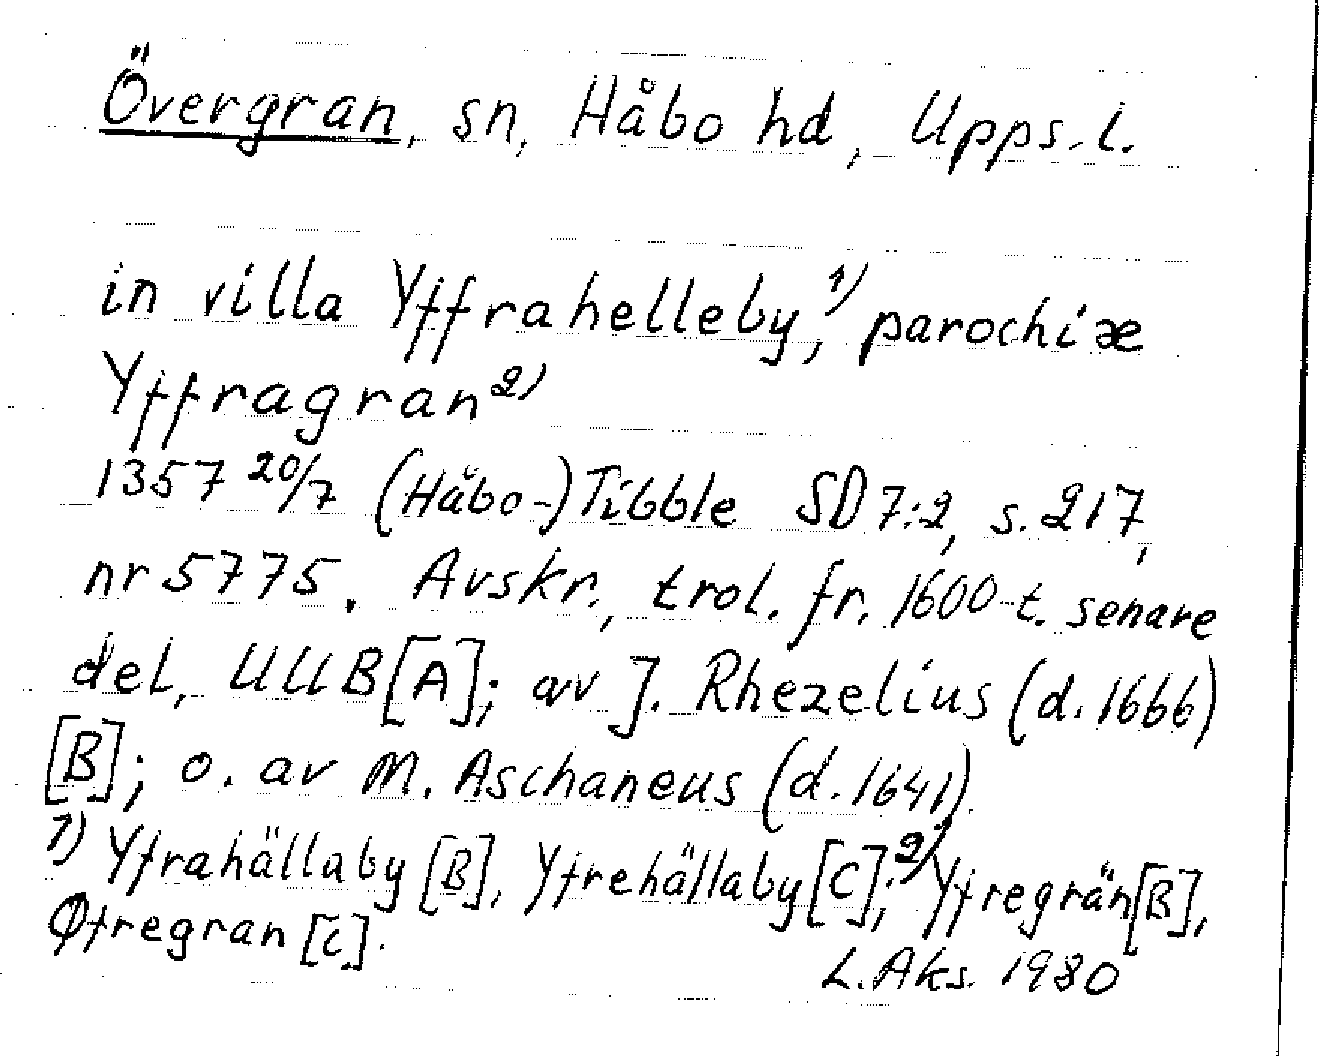 Övergran, sn, Håbo hd, Upps. l.
in villa Yffrahelleby,¹⁾ parochiæ
Yffragran²⁾
1357 20/7 (Håbo-)Tibble SD 7:2, s. 217,
nr 5775. Avskr., trol. fr. 1600-t. senare
del, UUB[A]; av J. Rhezelius (d. 1666)
[B]; o. av M. Aschaneus (d. 1641).
¹⁾ Yfrahällaby [B], Yfrehällaby [C]; ²⁾ Yfregrän [B],
Øfregran [C].
L. Aks. 1980